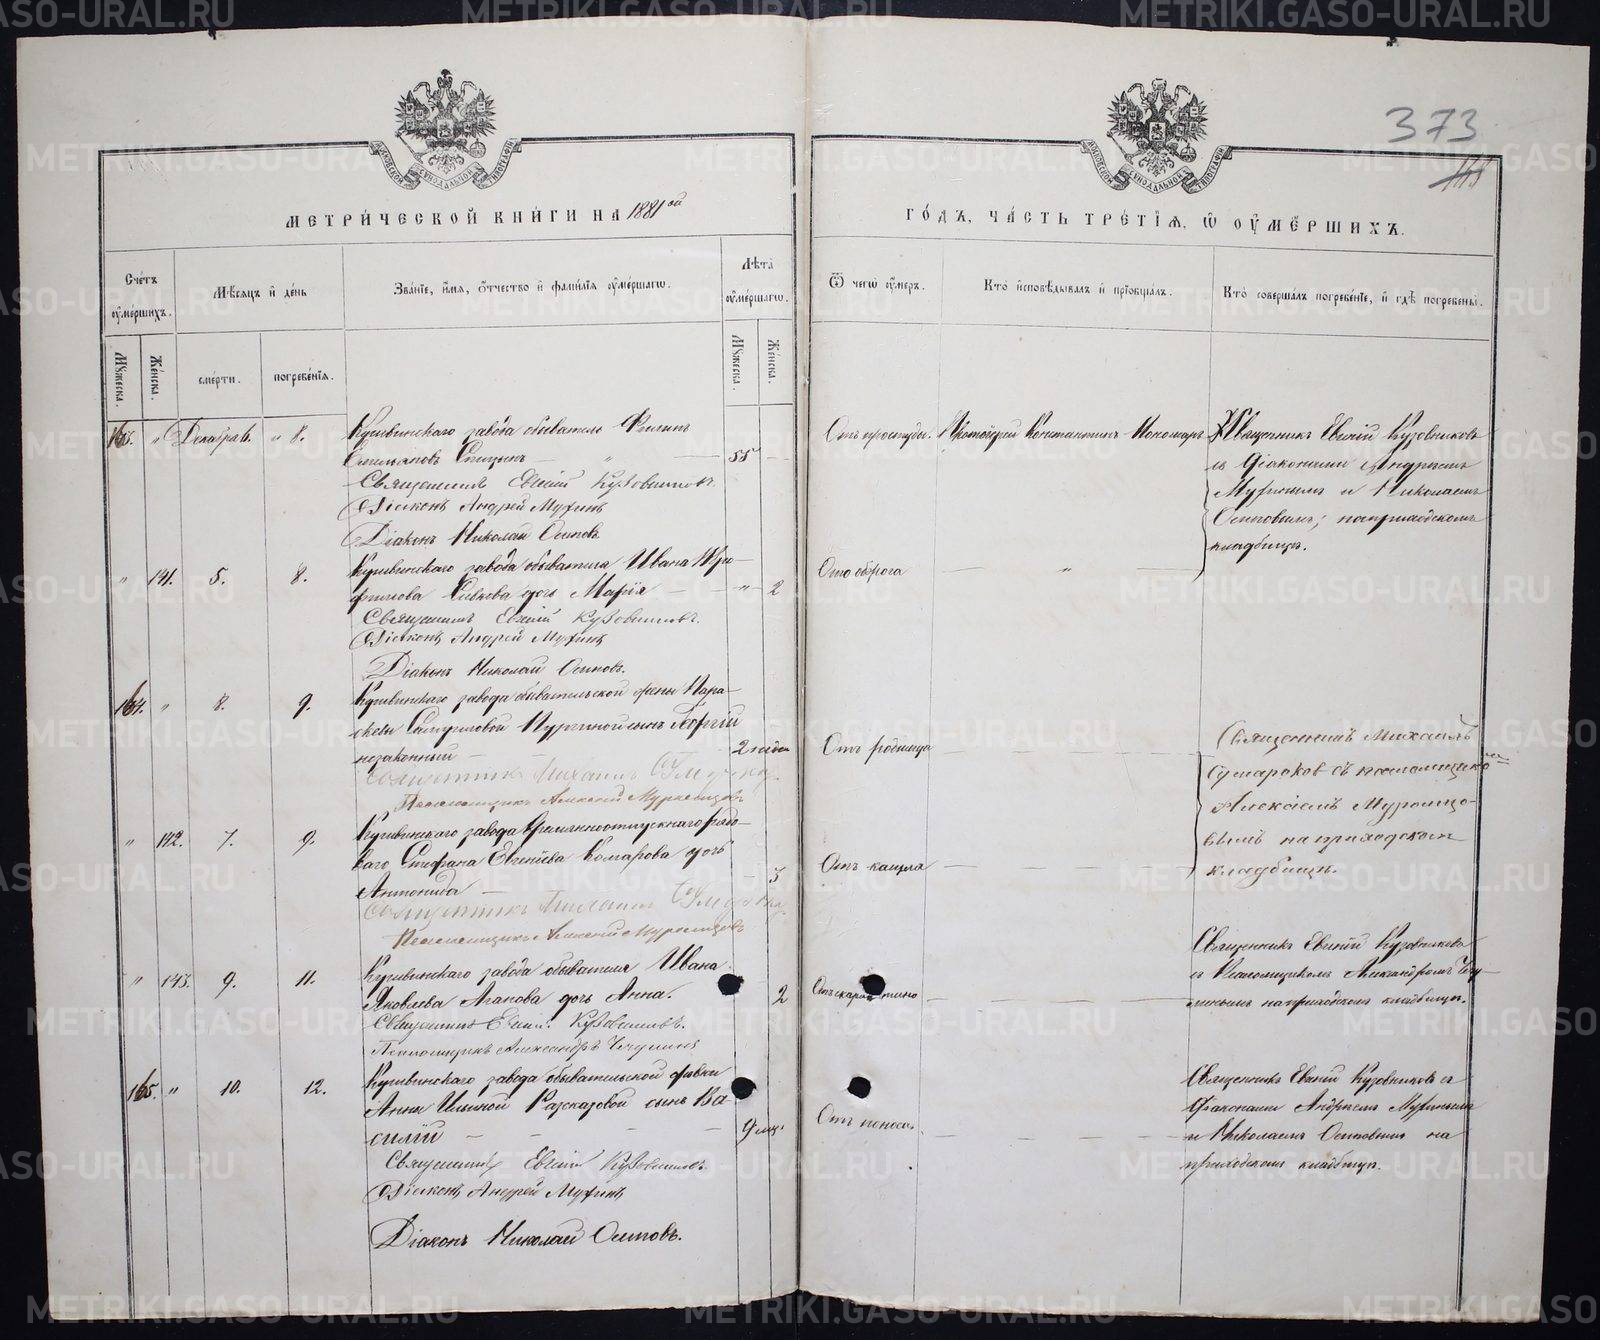 373
МЕТРИ́ЧЕСКОЙ КНИ́ГИ НА 1881ой
ГО́ДЪ, ЧА́СТЬ ТРЕ́ТІЯ, Ѽ ОУМЕ́РШИХЪ.
Сче́тъ оуме́ршихъ.
Мꙋжеска.
Же́нска.
Мѣсяцъ и де́нь
сме́рти.
погребе́нія.
Зва́ніе, и́мя, о́тчество и фами́лія оуме́ршагѡ.
Лѣта̀ оуме́ршагѡ.
Мꙋжеска.
Же́нска.
Ѿ чегѡ̀ оу́меръ.
Кто̀ исповѣ́дывалъ и пріобща́лъ.
Кто̀ соверша́лъ погребе́ніе, и гдѣ̀ погребены̀.
" Декабря 6. " 8.
Кушвинскаго завода обыватель Филипъ
Емельяновъ Спицынъ — " — 55
Священникъ Евгеній Кузовниковъ.
Діаконъ Андрей Мухинъ
Діаконъ Николай Осиповъ
Отъ простуды.
Протоіерей Константинъ Пономаревъ
Священникъ Евгеній Кузовниковъ
съ Діаконами Андреемъ
Мухинымъ и Николаемъ
Осиповымъ; на приходскомъ
кладбищѣ.
" 141. 5. 8.
Кушвинскаго завода обывателя Ивана
дочь Марія — — " 2
Священникъ Евгеній Кузовниковъ.
Діаконъ Андрей Мухинъ
Діаконъ Николай Осиповъ.
164. " 8. 9.
Кушвинскаго завода обывательской жены Пара-
скевы сынъ Георгій
незаконный — 2 недѣли
Священникъ Михаилъ
Псаломщикъ Алексѣй
Отъ родимца
Священникъ Михаилъ
съ псаломщикомъ
Алексѣемъ
на приходскомъ
кладбищѣ.
" 142. 7. 9.
Кушвинскаго завода временноотпускнаго рядо-
ваго Стефана Евгеніева Комарова дочь
Антонида — 3
Священникъ Михаилъ
Псаломщикъ Алексѣй
Отъ кашля
" 143. 9. 11.
Кушвинскаго завода обывателя Ивана
Яковлева Агапова дочь Анна. 2
Священникъ Евгеній Кузовниковъ.
Псаломщикъ Александръ Чечулинъ
Священникъ Евгеній Кузовниковъ
съ Псаломщикомъ Александромъ Чечу-
линымъ на приходскомъ кладбищѣ.
165. " 10. 12.
Кушвинскаго завода обывательской дѣвки
Анны Ильиной Разсказовой сынъ Ва-
силій — — — — 9 мѣс.
Священникъ Евгеній Кузовниковъ
Діаконъ Андрей Мухинъ
Діаконъ Николай Осиповъ.
Отъ поноса.
Священникъ Евгеній Кузовниковъ съ
Діаконами Андреемъ Мухинымъ
и Николаемъ Осиповымъ на
приходскомъ кладбищѣ.
METRIKI.GASO-URAL.RU